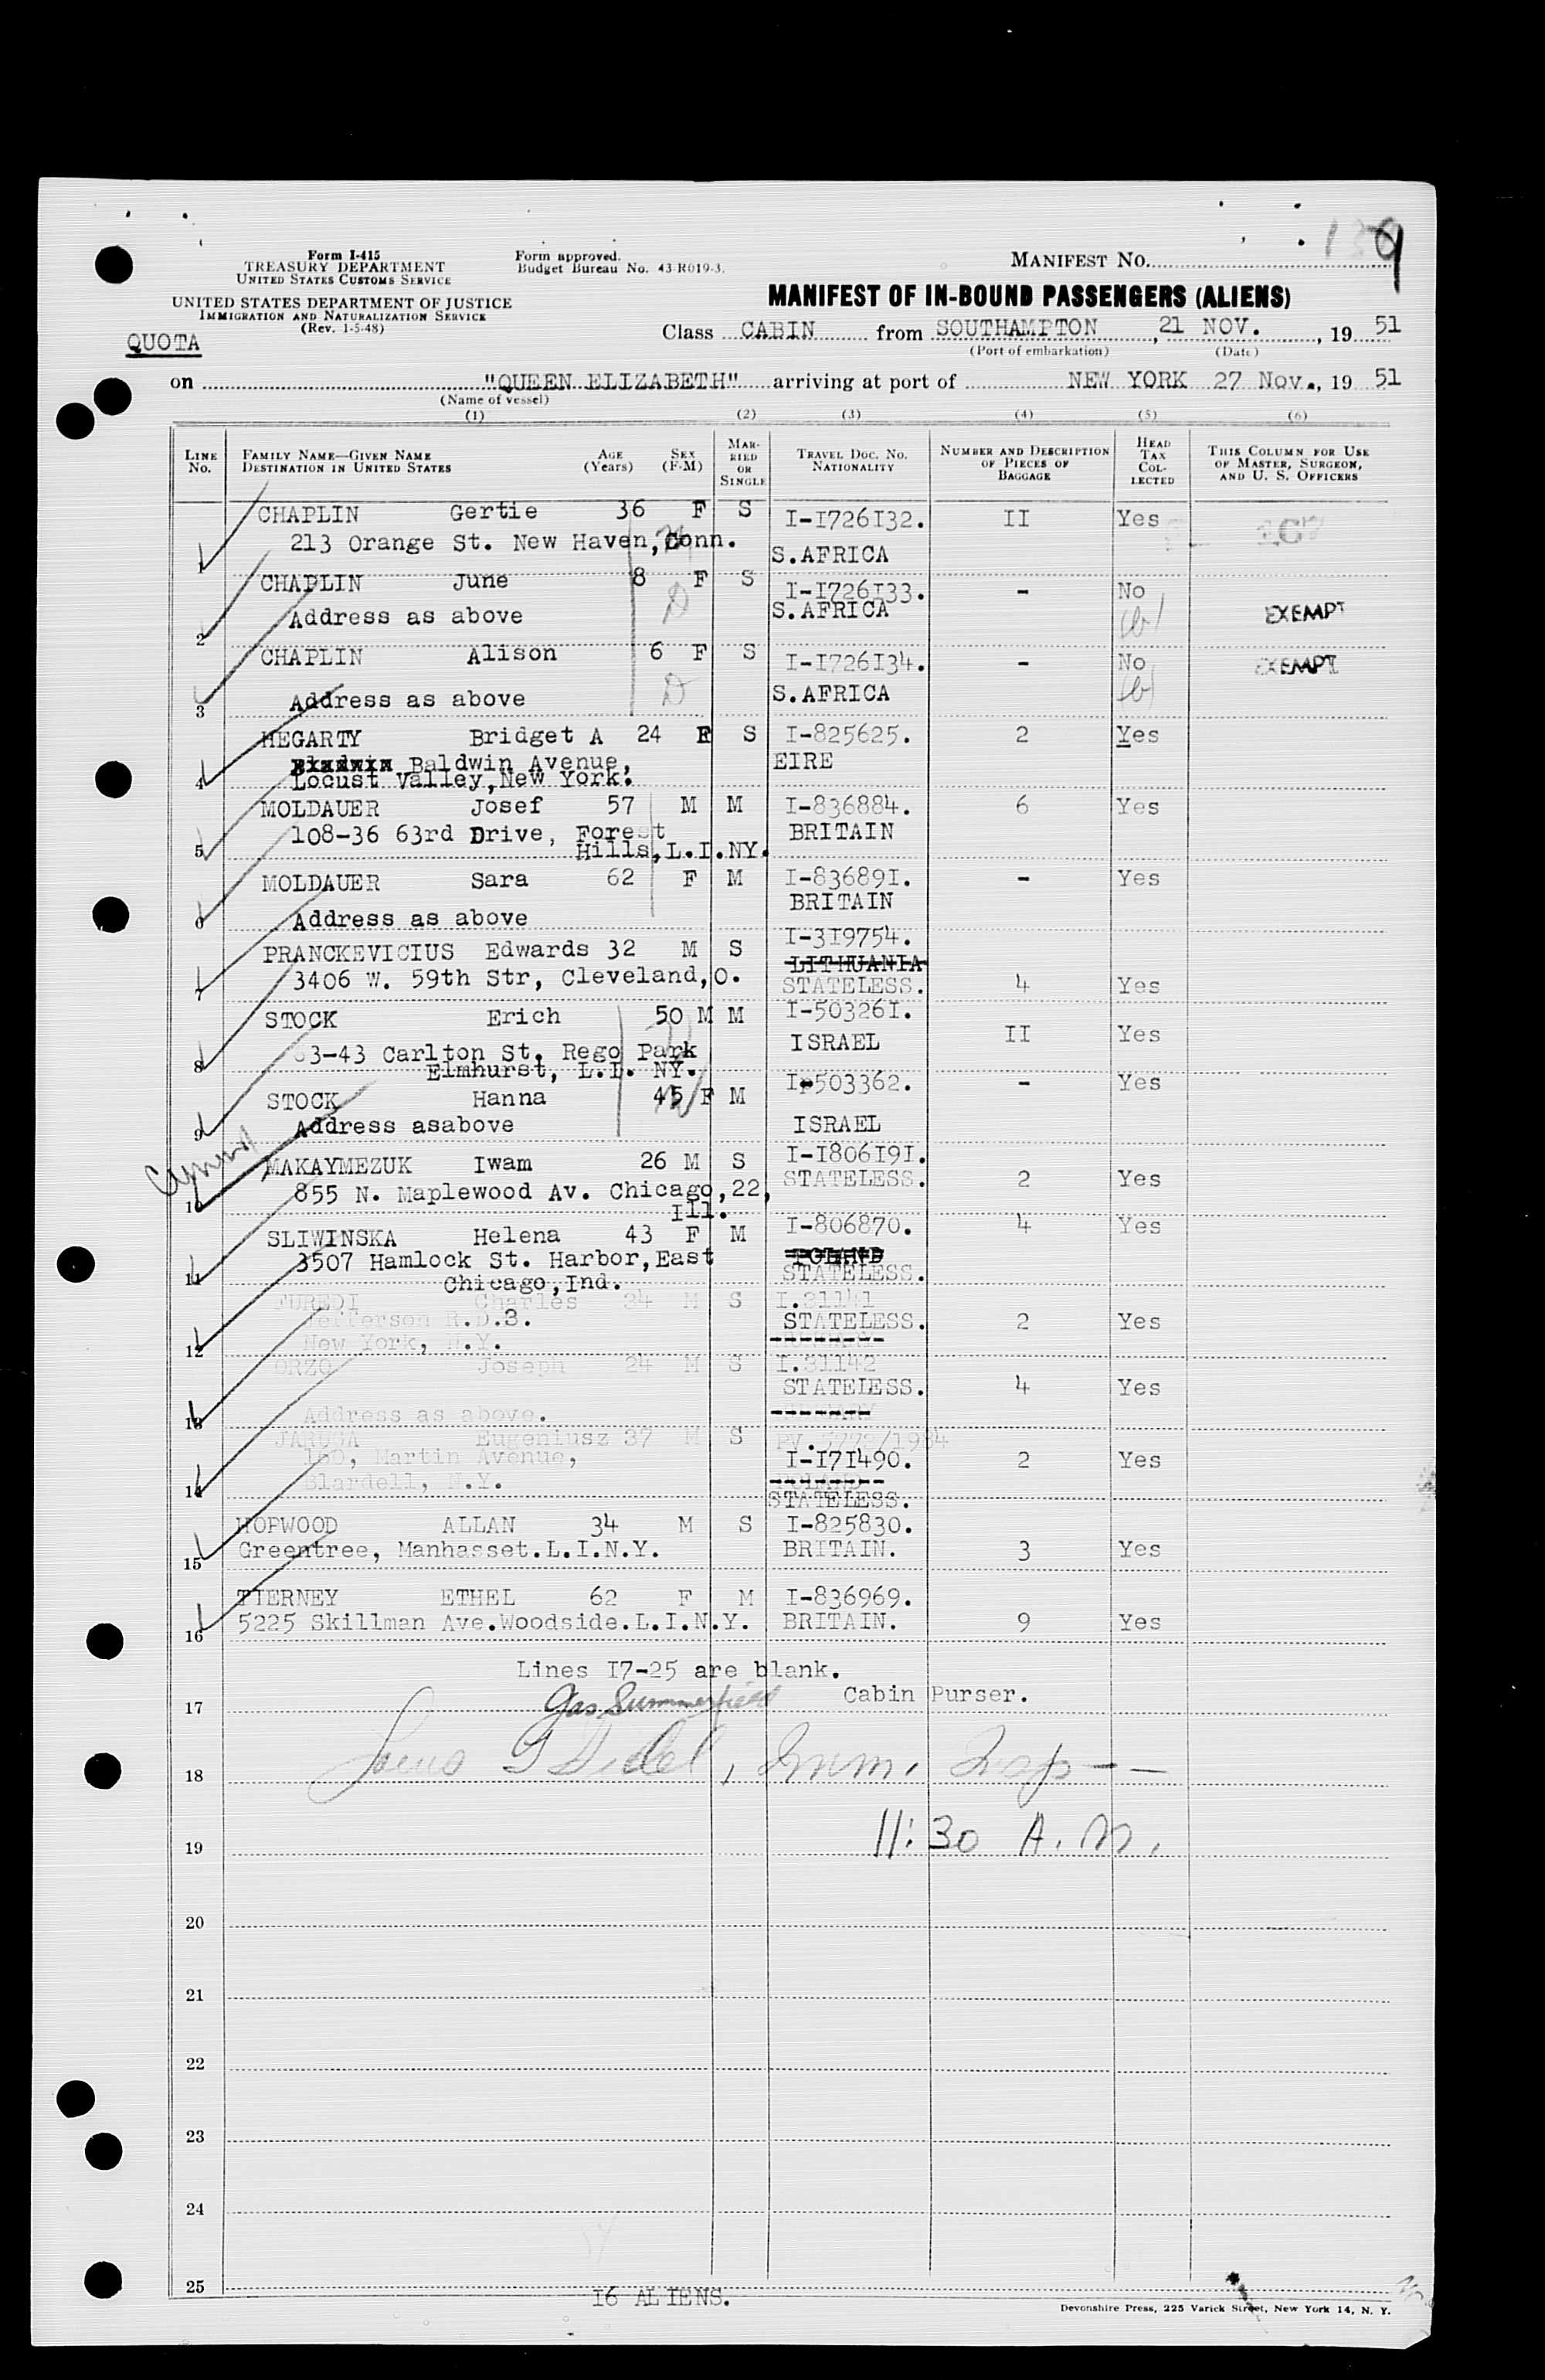 139
Form I-415
TREASURY DEPARTMENT
UNITED STATES CUSTOMS SERVICE
UNITED STATES DEPARTMENT OF JUSTICE
IMMIGRATION AND NATURALIZATION SERVICE
(Rev. 1-5-48)
Form approved.
Budget Bureau No. 43-R019-3.
MANIFEST NO.
MANIFEST OF IN-BOUND PASSENGERS (ALIENS)
QUOTA
Class CABIN from SOUTHAMPTON, 21 NOV., 19 51
(Port of embarkation) (Date)
on "QUEEN ELIZABETH" arriving at port of NEW YORK 27 Nov., 19 51
(Name of vessel)
(1) (2) (3) (4) (5) (6)
LINE NO. FAMILY NAME—GIVEN NAME DESTINATION IN UNITED STATES AGE (Years) SEX (F-M) MARRIED OR SINGLE TRAVEL DOC. NO. NATIONALITY NUMBER AND DESCRIPTION OF PIECES OF BAGGAGE HEAD TAX COLLECTED THIS COLUMN FOR USE OF MASTER, SURGEON, AND U. S. OFFICERS
CHAPLIN Gertie 36 F S I-I726I32. II Yes
213 Orange St. New Haven, Conn.
1 S.AFRICA
CHAPLIN June 8 F S I-I726I33. - No
D (b) EXEMPT
2 Address as above S.AFRICA
CHAPLIN Alison 6 F S I-I726I34. - No EXEMPT
D (b)
3 Address as above S.AFRICA
HEGARTY Bridget A 24 F S I-825625. 2 Yes
Baldwin Avenue, EIRE
4 Locust Valley, New York.
MOLDAUER Josef 57 M M I-836884. 6 Yes
108-36 63rd Drive, Forest BRITAIN
5 Hills, L.I.NY.
MOLDAUER Sara 62 F M I-83689I. - Yes
BRITAIN
6 Address as above
PRANCKEVICIUS Edwards 32 M S I-3I9754.
LITHUANIA
7 3406 W. 59th Str, Cleveland, O. STATELESS. 4 Yes
STOCK Erich 50 M M I-50326I. II Yes
3-43 Carlton St. Rego Park ISRAEL
8 Elmhurst, L.I. NY.
STOCK Hanna 45 F M I-503362. - Yes
9 Address asabove ISRAEL
MAKAYMEZUK Iwam 26 M S I-I806I9I.
855 N. Maplewood Av. Chicago, 22, STATELESS. 2 Yes
10 Ill.
SLIWINSKA Helena 43 F M I-806870. 4 Yes
3507 Hamlock St. Harbor, East POLAND
11 Chicago, Ind. STATELESS.
FUREDI Charles 34 M S I.31141
Jefferson R.D.3. STATELESS. 2 Yes
12 New York, N.Y. HUNGARY
ORZO Joseph 24 M S I.31142
STATELESS. 4 Yes
13 Address as above. HUNGARY
JARUGA Eugeniusz 37 M S
160, Martin Avenue, I-I7I490. 2 Yes
14 Blardell, N.Y. POLAND
STATELESS.
HOPWOOD ALLAN 34 M S I-825830.
15 Greentree, Manhasset.L.I.N.Y. BRITAIN. 3 Yes
TIERNEY ETHEL 62 F M I-836969.
16 5225 Skillman Ave.Woodside.L.I.N.Y. BRITAIN. 9 Yes
Lines I7-25 are blank.
17 Jas Summerfield Cabin Purser.
18 Imm. Insp
19 11:30 A.M.
20
21
22
23
24
25
I6 ALIENS.
Devonshire Press, 225 Varick Street, New York 14, N. Y.